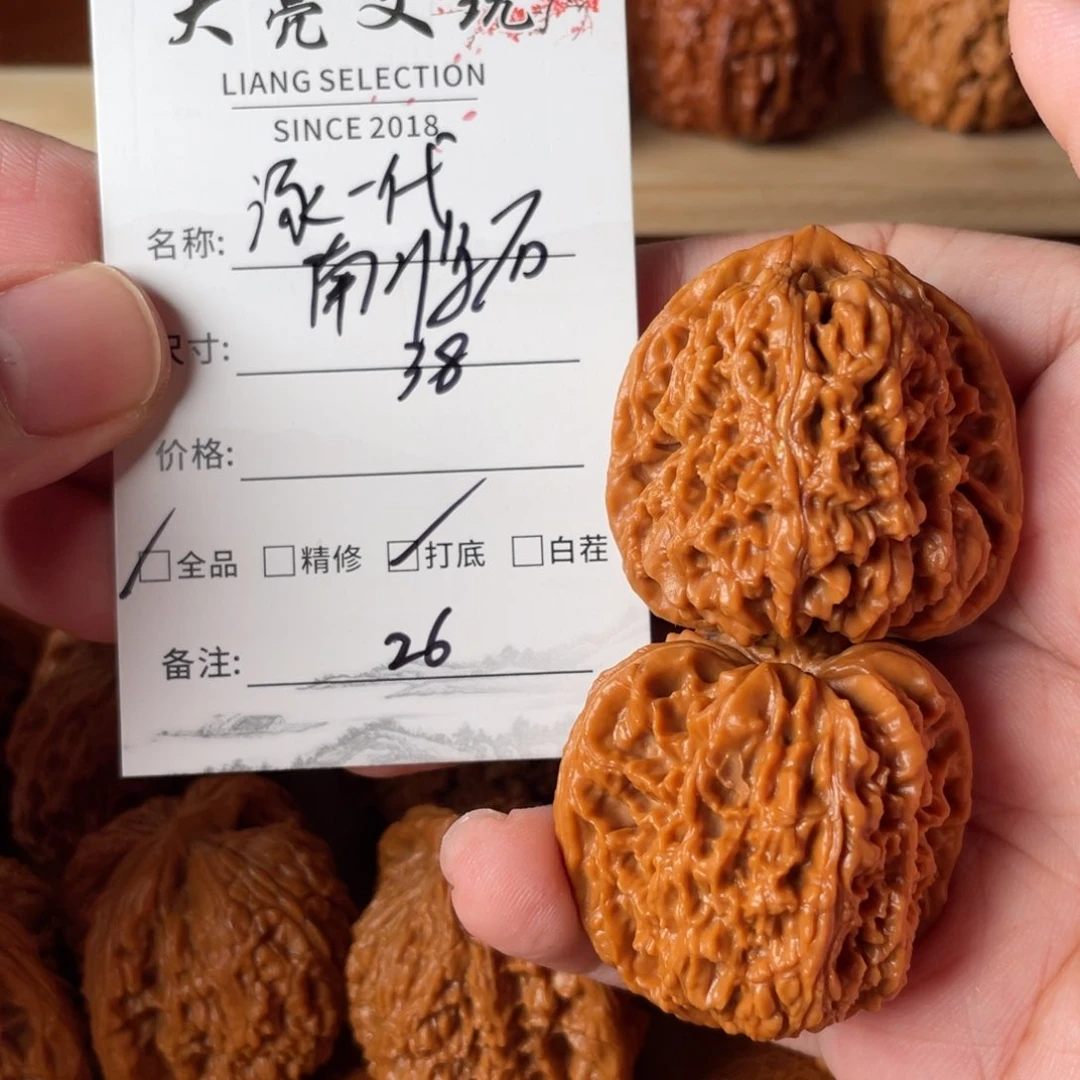 大亮文玩
LIANG SELECTION
SINCE 2018
名称: 涿一代
南将石
尺寸: 38
价格:
全品 精修 打底 白茬
备注: 26